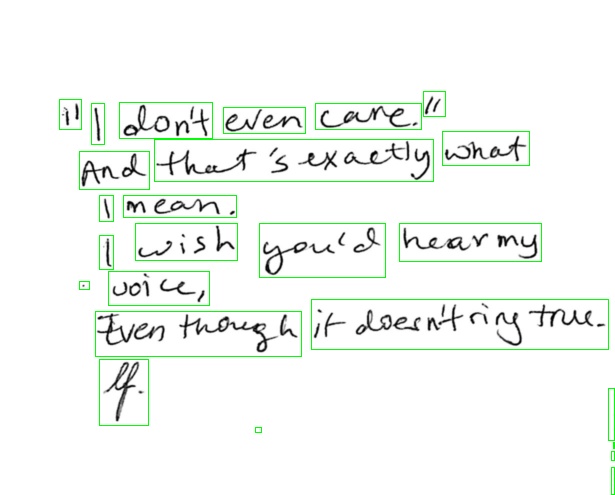 "I don't even care."
And that's exactly what
I mean.
I wish you'd hear my
voice,
Even though it doesn't ring true.